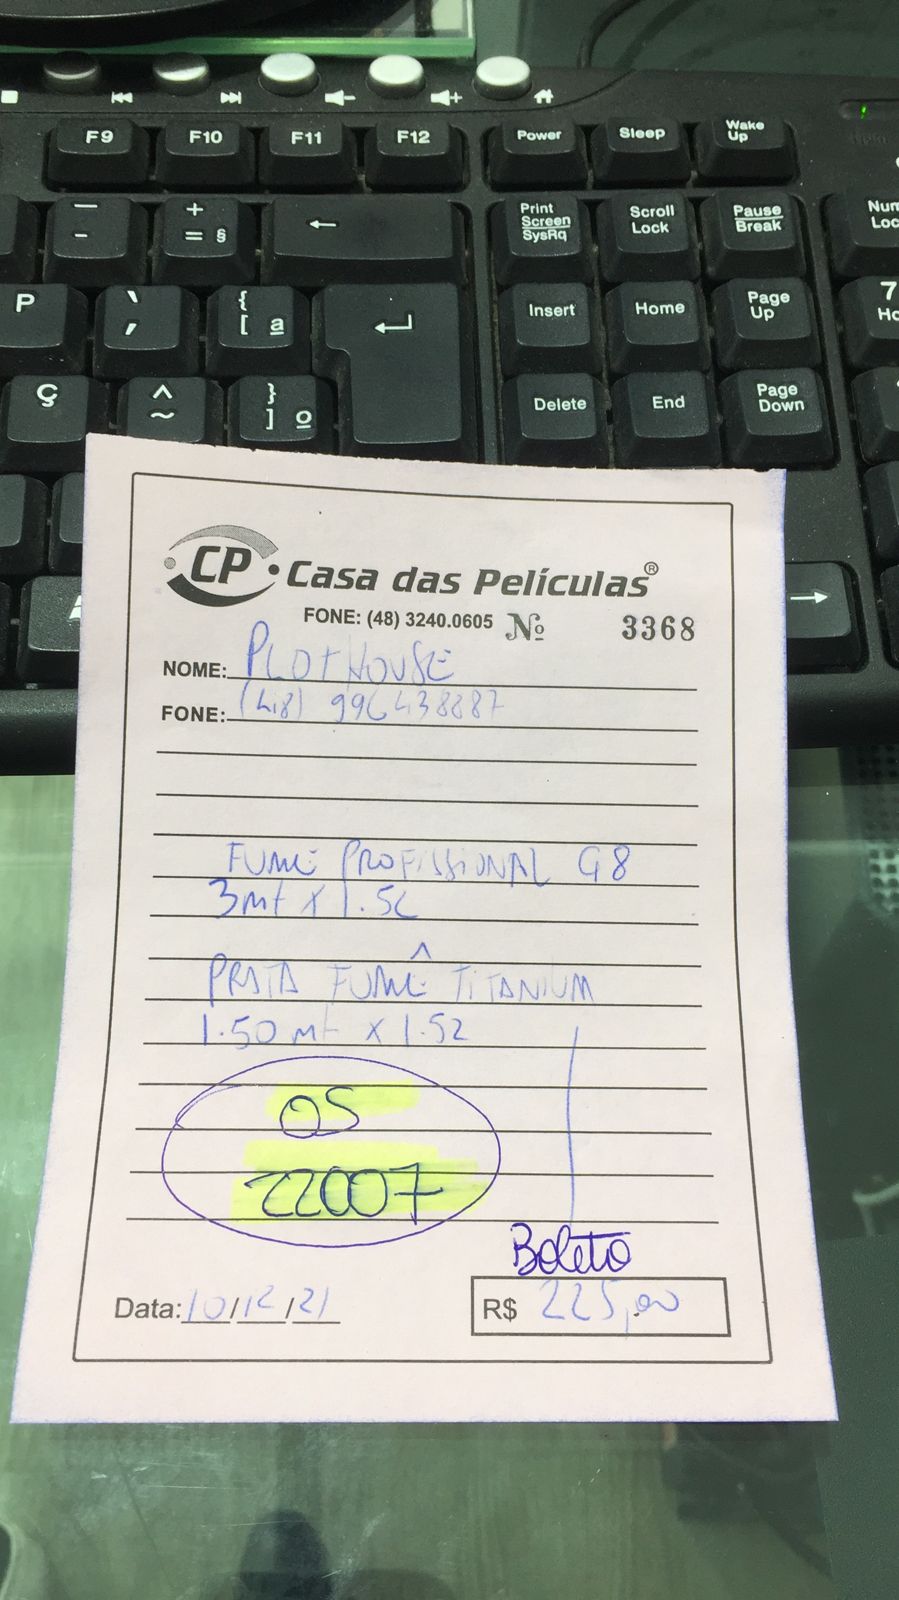 F9 F10 F11 F12 Power Sleep Wake Up
— - + = § ← Print Screen SysRq Scroll Lock Pause Break Num Loc
P ` ´ { [ ª ↵ Insert Home Page Up 7 Ho
Ç ^ ~ } ] º Delete End Page Down
→
CP Casa das Películas®
FONE: (48) 3240.0605 Nº 3368
NOME: PLOTHOUSE
FONE: (48) 996438887
FUMÊ PROFISSIONAL G8
3mt x 1.52
PRATA FUMÊ TITANIUM
1.50 mt x 1.52
OS
22007
Boleto
Data: 10/12/21 R$ 225,00